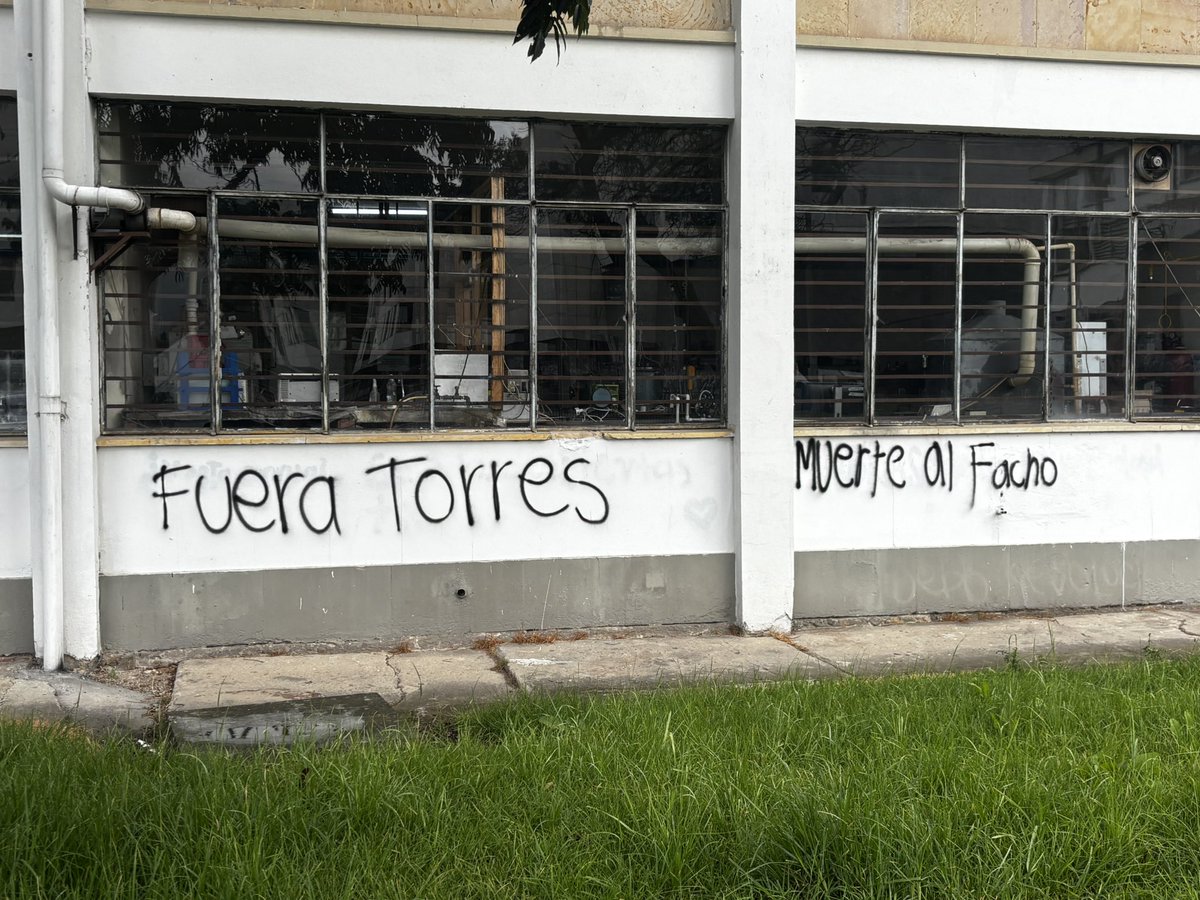 Fuera Torres
Muerte al Facho